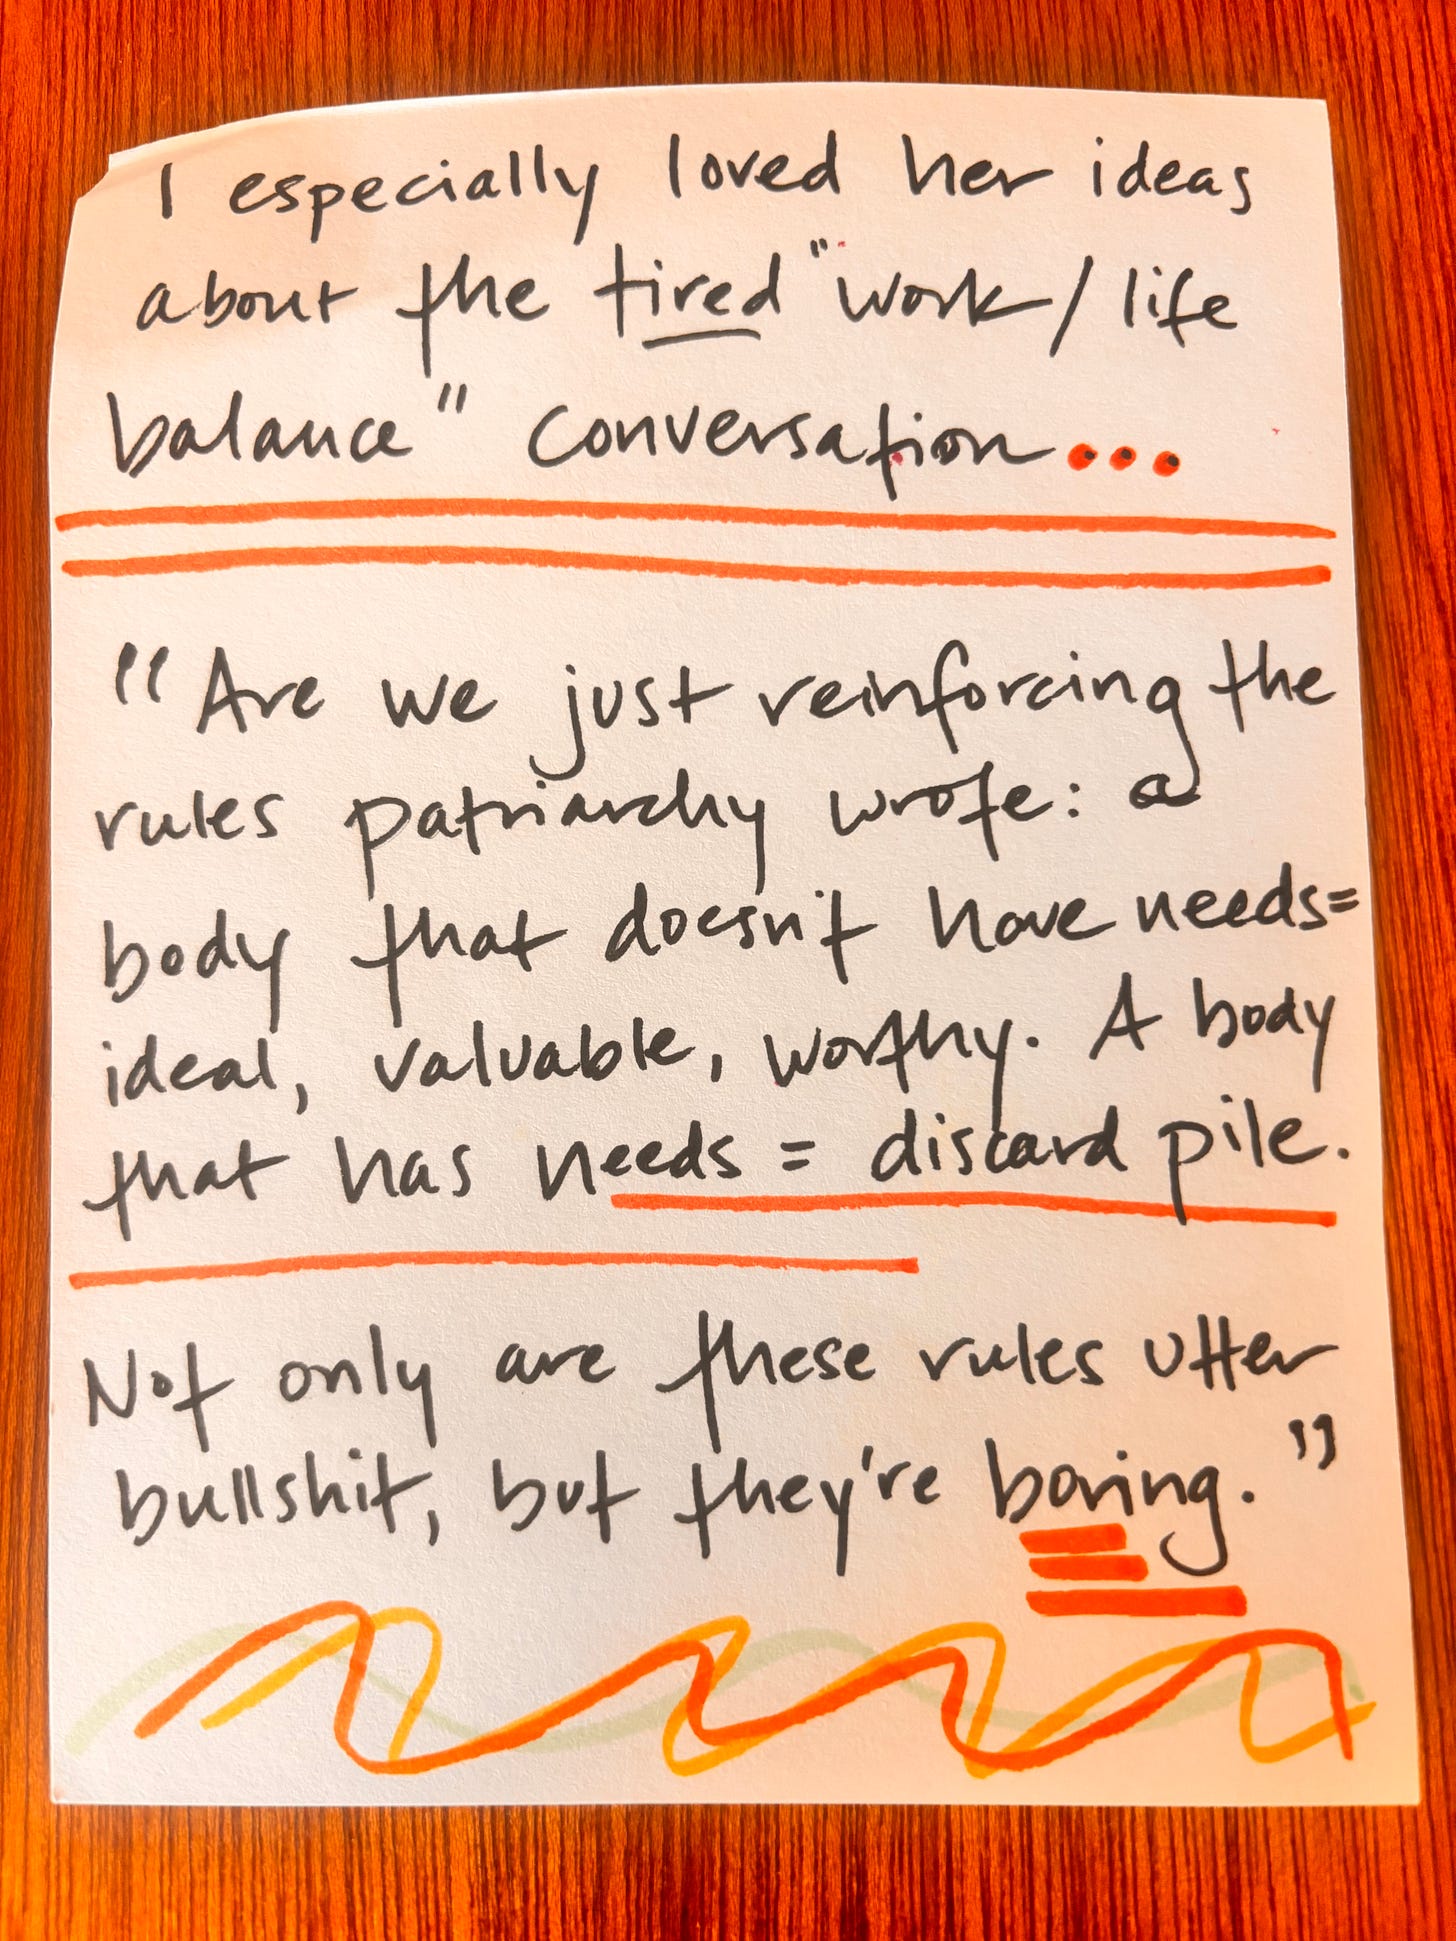 I especially loved her ideas
about the tired "work/life
balance" conversation...
"Are we just reinforcing the
rules patriarchy wrote: a
body that doesn't have needs=
ideal, valuable, worthy. A body
that has needs = discard pile.
Not only are these rules utter
bullshit, but they're boring."